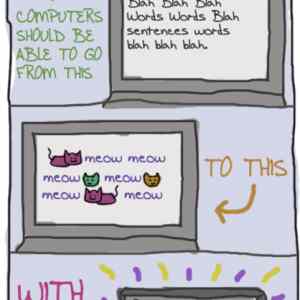 COMPUTERS
SHOULD BE
ABLE TO GO
FROM THIS
Blah Blah Blah
Words Words Blah
sentences words
blah blah blah.
meow meow
meow meow
meow meow
TO THIS
WITH